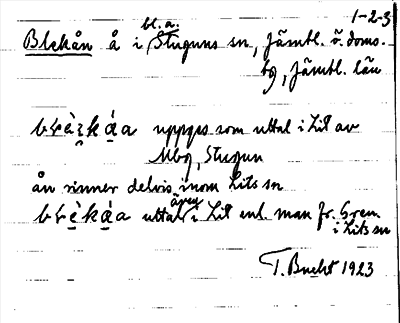 1-2-3
bl. a.
Blekån å i Stuguns sn, Jämtl. ö. doms.
bg, Jämtl. län
uppges som uttal i Lit av
Mbg, Stugun
ån rinner delvis inom Lits sn
även
uttal i Lit enl. man fr.
i Lits sn
T. Bucht 1923